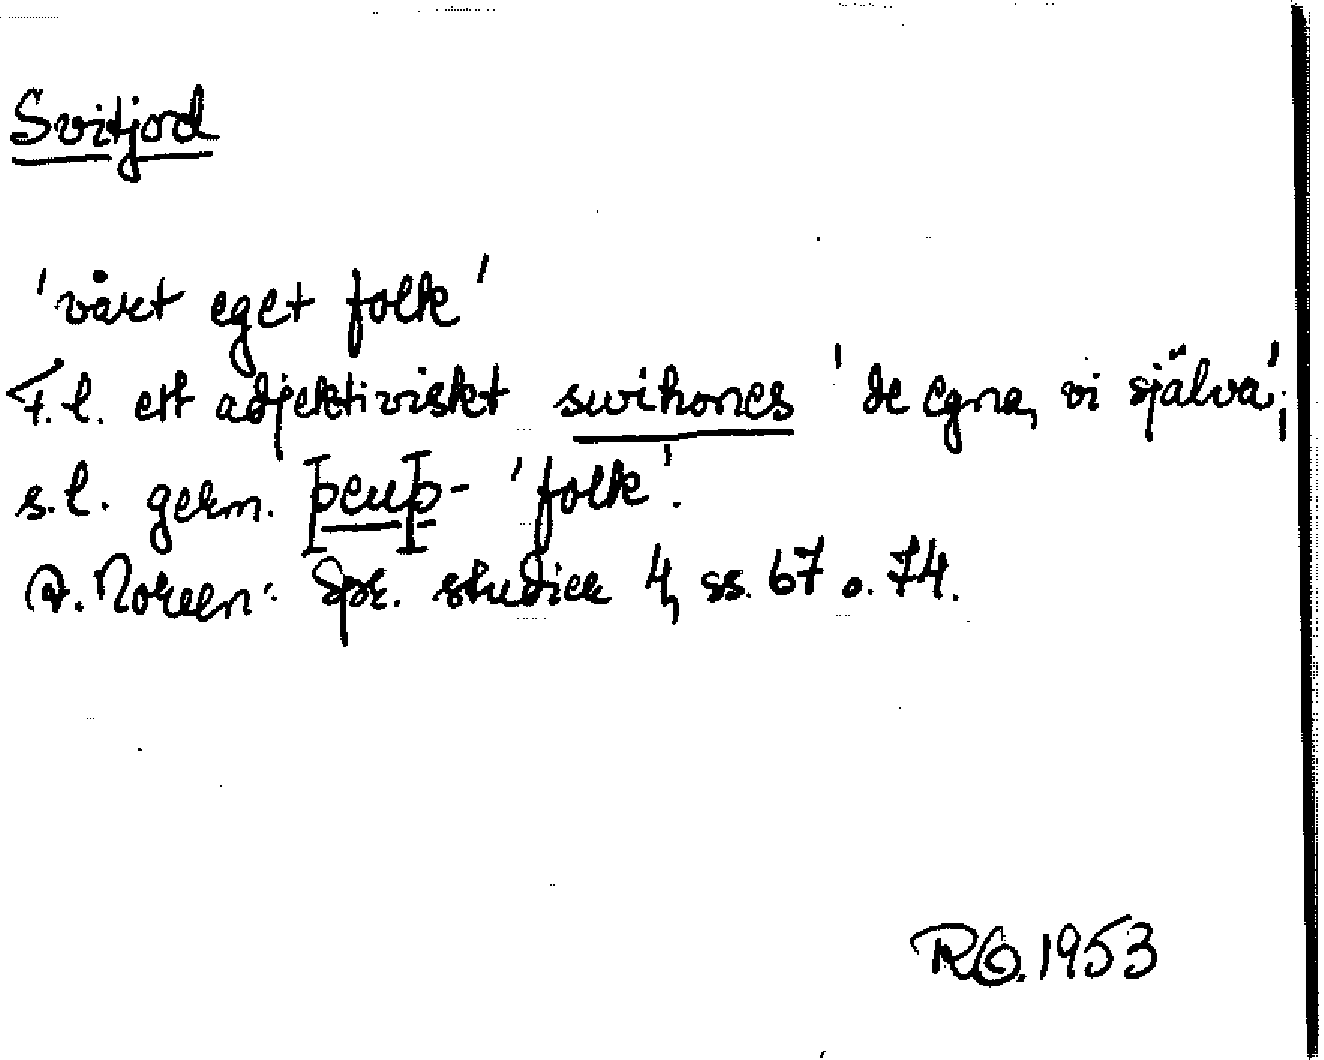 Svitjod
'vårt eget folk'
F.l. ett adjektiviskt swihones 'de egna, vi själva';
s.l. germ. þeuþ- 'folk'.
A. Noreen: Spr. studier 4, ss. 67 o. 74.
RO. 1953